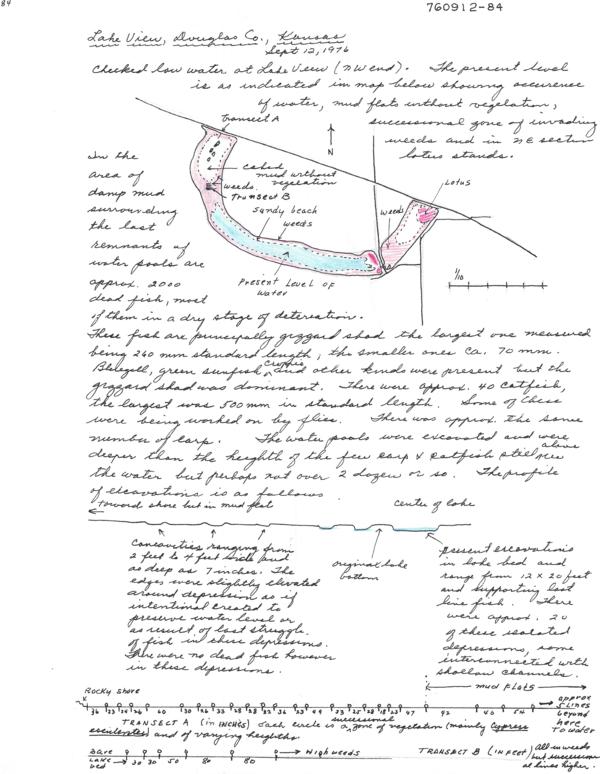 84
760912-84
Lake View, Douglas Co., Kansas
Sept 12, 1976
Checked low water at Lake View (NW end). The present level
is as indicated in map below showing occurence
of water, mud flats without vegelation,
successional zone of invading
weeds and in NE section
lotus stands.
Transect A
N
In the
area of
damp mud
surrounding
the last
remnants of
water pools are
approx. 2000
dead fish, most
of them in a dry stage of deteriation.
caked
mud without
vegetation
weeds
Transect B
Sandy beach
weeds
Present Level of
Water
weeds
Lotus
1/10
These fish are principally gizzard shad the largest one measured
being 260 mm standard length, the smaller ones ca. 70 mm.
Bluegill, green sunfish, crappie and other kinds were present but the
gizzard shad was dominant. There were approx. 40 catfish,
the largest was 500 mm in standard length. Some of these
were being worked on by flies. There was approx. the same
number of carp. The water pools were excavated and were
deeper than the heighth of the few carp & catfish still alive
the water but perhaps not over 2 dozen or so. The profile
of excavations is as follows
toward shore but in mud flat
Center of lake
Concavities ranging from
2 feet to 4 feet wide and
as deep as 7 inches. The
edges were slightly elevated
around depression as if
intentional created to
preserve water level or
as result of last struggle
of fish in these depressions.
There were no dead fish however
in these depressions.
original lake
bottom
present excavations
in lake bed and
range from 12 x 20 feet
and supporting last
live fish. There
were approx. 20
of these isolated
depressions, some
interconnected with
shallow channels.
mud flats
Rocky shore
approx
5 lines
beyond
here
To water
TRANSECT A (in INCHES) Each circle is a successional zone of vegetation (mainly Cyperus
esculentus) and of varying heighths
Bare
Lake
bed
30 30 50 80 80
High weeds
TRANSECT B (IN FEET) All in weeds
but succession
at lines higher.